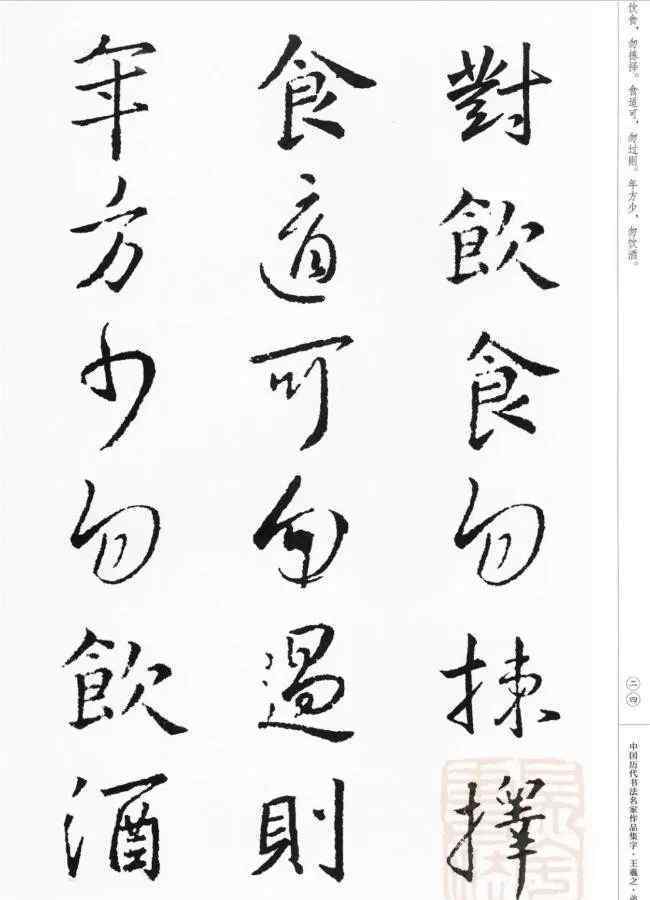 饮食，勿拣择。食适可，勿过则。年方少，勿饮酒。
二四
中国历代书法名家作品集字·王羲之·
對飲食勿揀擇
食適可勿過則
年方少勿飲酒